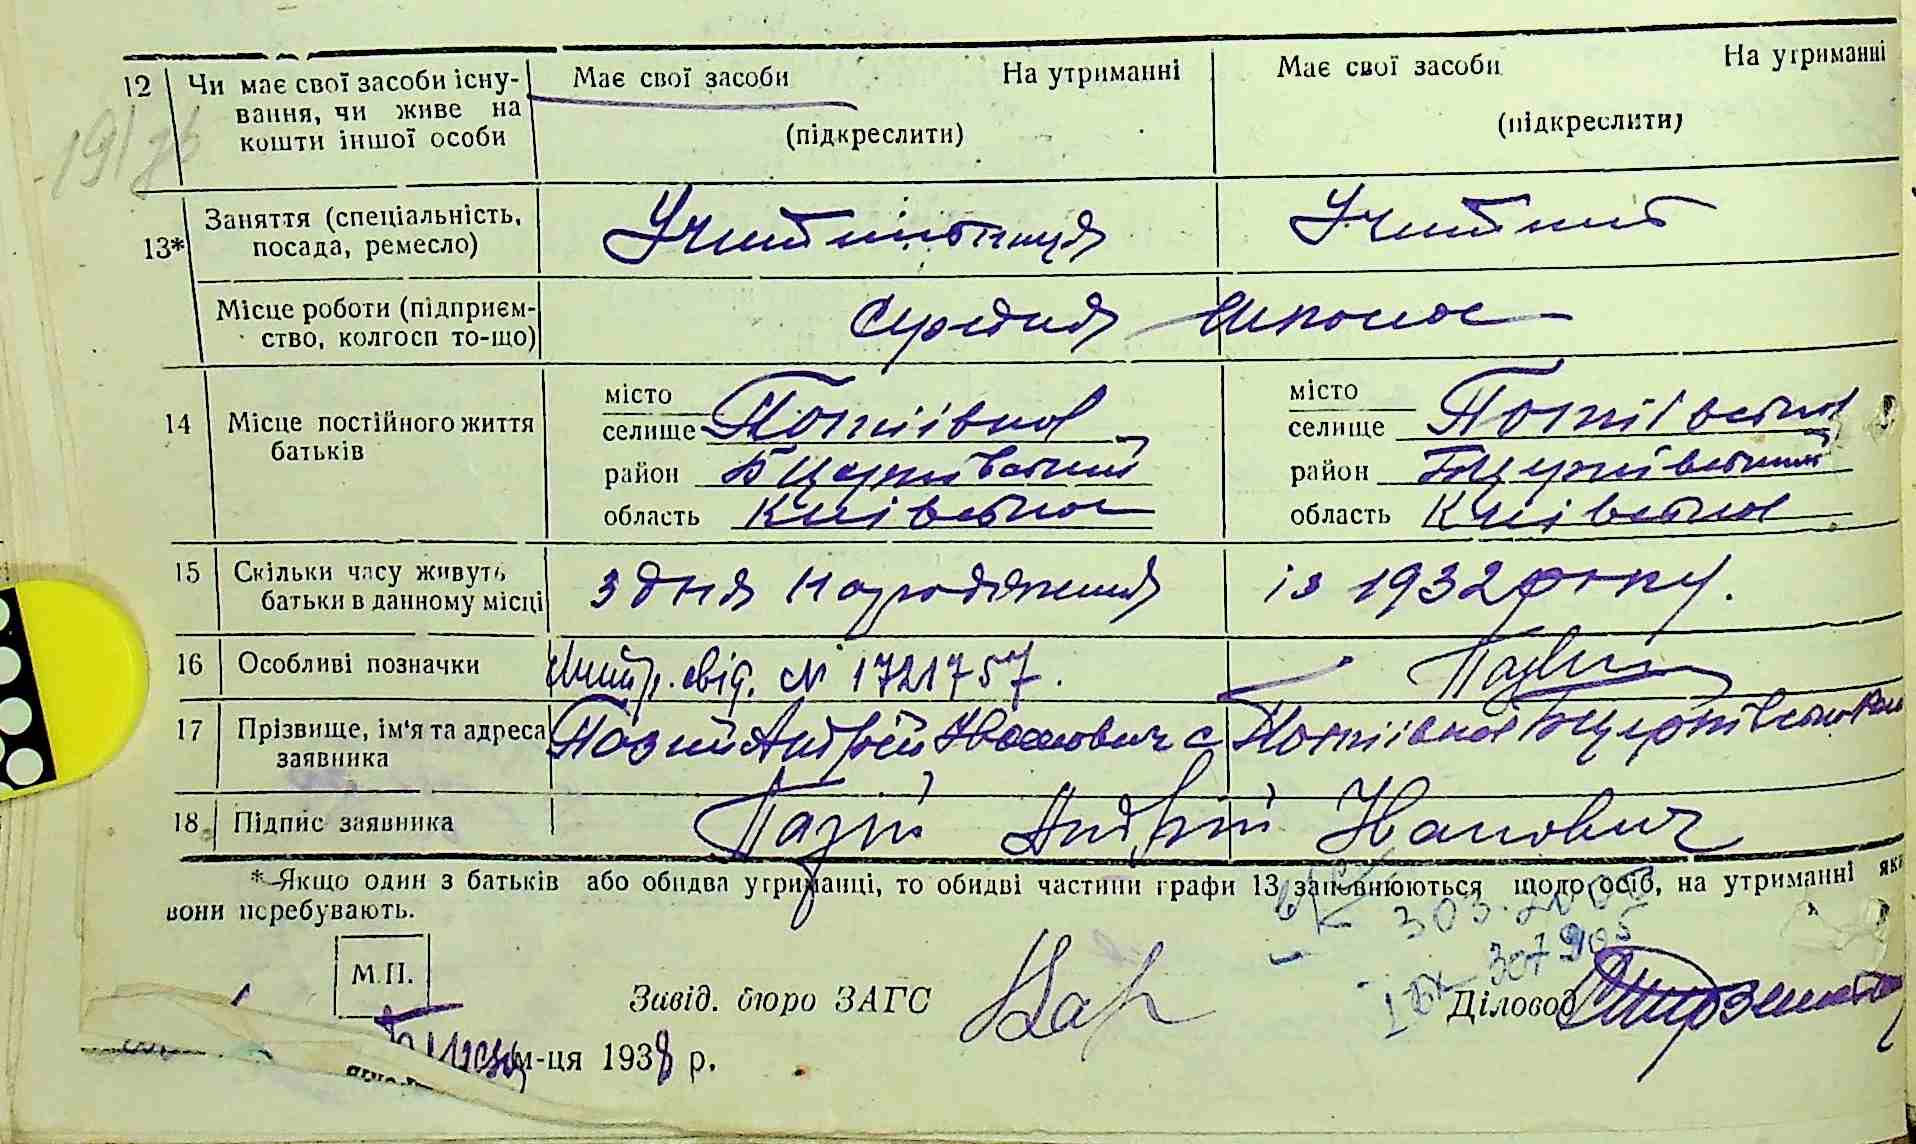 12 Чи має свої засоби існу- Має свої засоби На утриманні Має свої засоби На утриманні
вання, чи живе на
кошти іншої особи (підкреслити) (підкреслити)
13* Заняття (спеціальність,
посада, ремесло) Учителька Учитель
Місце роботи (підприєм-
ство, колгосп то-що) Середня школа
14 Місце постійного життя
батьків
місто місто
селище Потіївка селище Потіївка
район Б Церківський район БЦерківський
область Київська область Київська
15 Скільки часу живуть
батьки в данному місці з дня народження із 1932 року.
16 Особливі позначки свід. № 1721757.
17 Прізвище, ім'я та адреса
заявника Позій Андрій Іванович с Потіївка БЦерківського
18 Підпис заявника Позій Андрій Іванович
*Якщо один з батьків або обидва утриманці, то обидві частини графи 13 заповнюються щодо осіб, на утриманні яки
вони перебувають.
303.
М.П.
Завід. бюро ЗАГС Діловод
м-ця 1938 р.